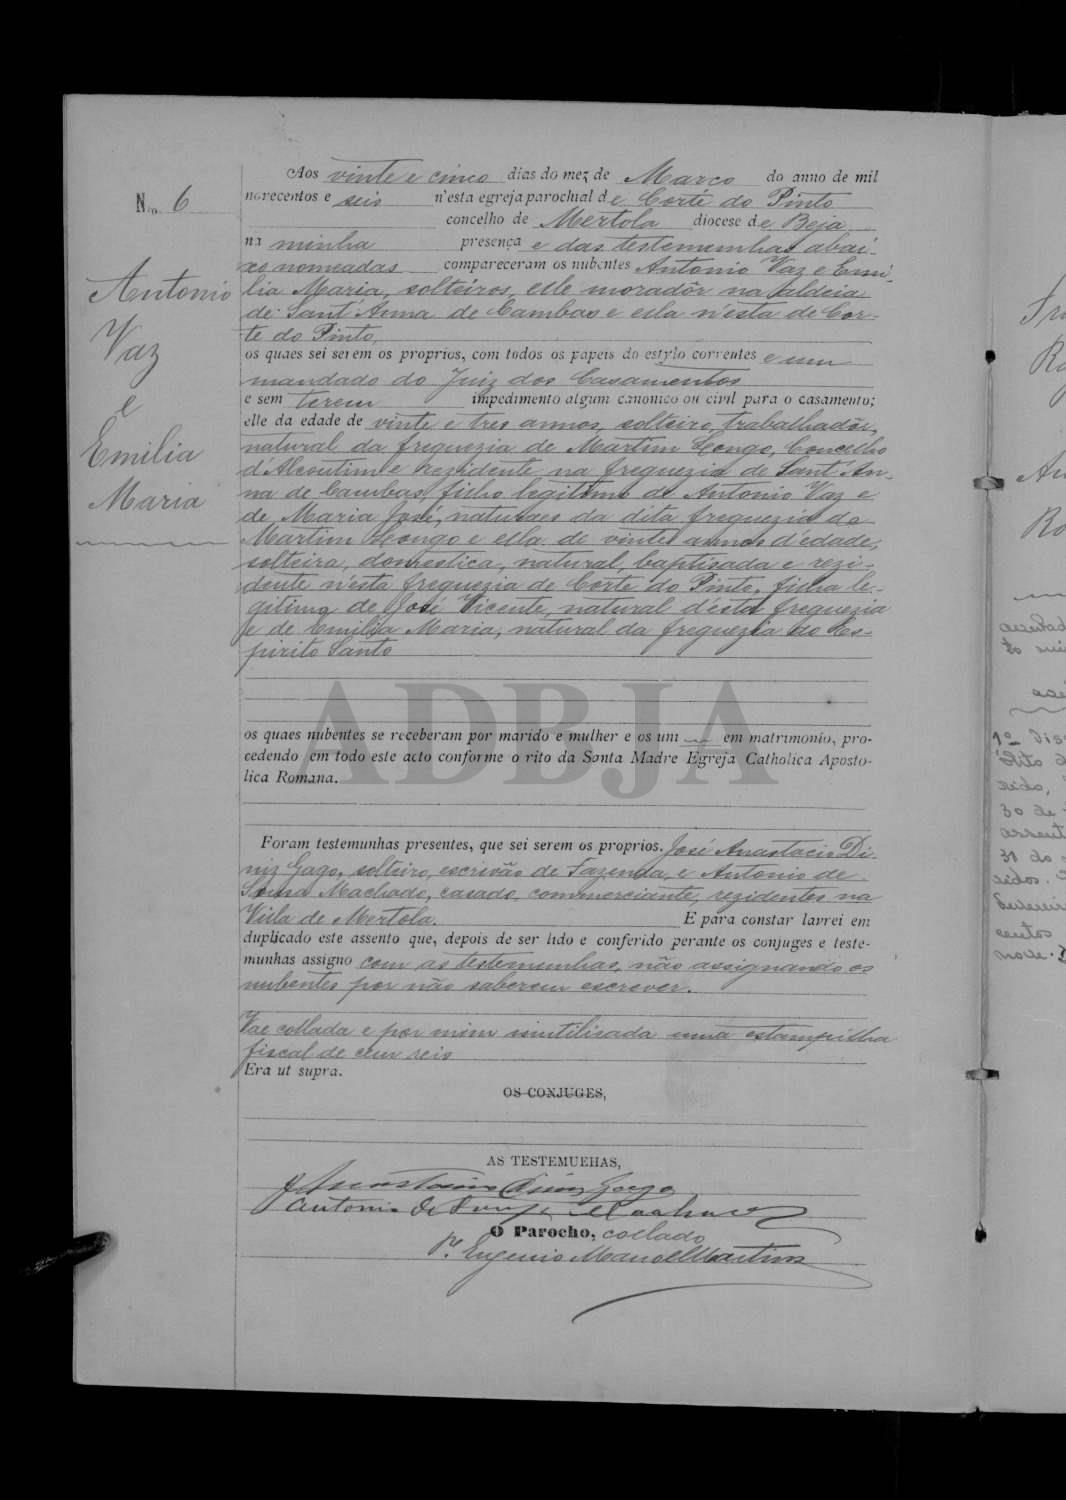 Aos vinte e cinco dias do mez de Março do anno de mil
N.º 6
novecentos e seis n'esta egreja parochial de Corte do Pinto
concelho de Mertola diocese de Beja
na minha presença e das testemunhas abai-
xo nomeadas compareceram os nubentes Antonio Vaz e Emi-
Antonio
Vaz
e
Emilia
Maria
lia Maria, solteiros, elle moradôr na aldeia
de Sant'Anna de Cambas e ella n'esta de Cor-
te do Pinto,
os quaes sei serem os proprios, com todos os papeis do estylo correntes e um
mandado do Juiz dos Casamentos
e sem terem impedimento algum canonico ou civil para o casamento;
elle da edade de vinte e tres annos, solteiro, trabalhadôr,
natural da freguezia de Martim Longo, Concelho
d'Alcoutim e rezidente na freguezia de Sant'An-
na de Cambas, filho legitimo de Antonio Vaz e
de Maria José, naturaes da dita freguezia de
Martim Longo e ella de vinte annos d'edade,
solteira, domestica, natural, baptisada e rezi-
dente n'esta freguezia de Corte do Pinto, filha le-
gitima de José Vicente, natural d'esta freguezia
e de Emilia Maria, natural da freguezia do Es-
pirito Santo
ADBJA
os quaes nubentes se receberam por marido e mulher e os uni em matrimonio, pro-
cedendo em todo este acto conforme o rito da Santa Madre Egreja Catholica Aposto-
lica Romana.
Foram testemunhas presentes, que sei serem os proprios. José Anastacio Di-
niz Gago, solteiro, escrivão de Fazenda, e Antonio de
Sousa Machado, casado, commerciante, rezidentes na
Villa de Mertola. E para constar lavrei em
duplicado este assento que, depois de ser lido e conferido perante os conjuges e teste-
munhas assigno com as testemunhas, não assignando os
nubentes por não saberem escrever.
Vae collada e por mim inutilisada uma estampilha
fiscal de cem reis
Era ut supra.
OS CONJUGES,
AS TESTEMUEHAS,
J Anastacio Diniz Gago
Antonio de Souza Machado
O Parocho, collado
P.e Eugenio Manoel Martins